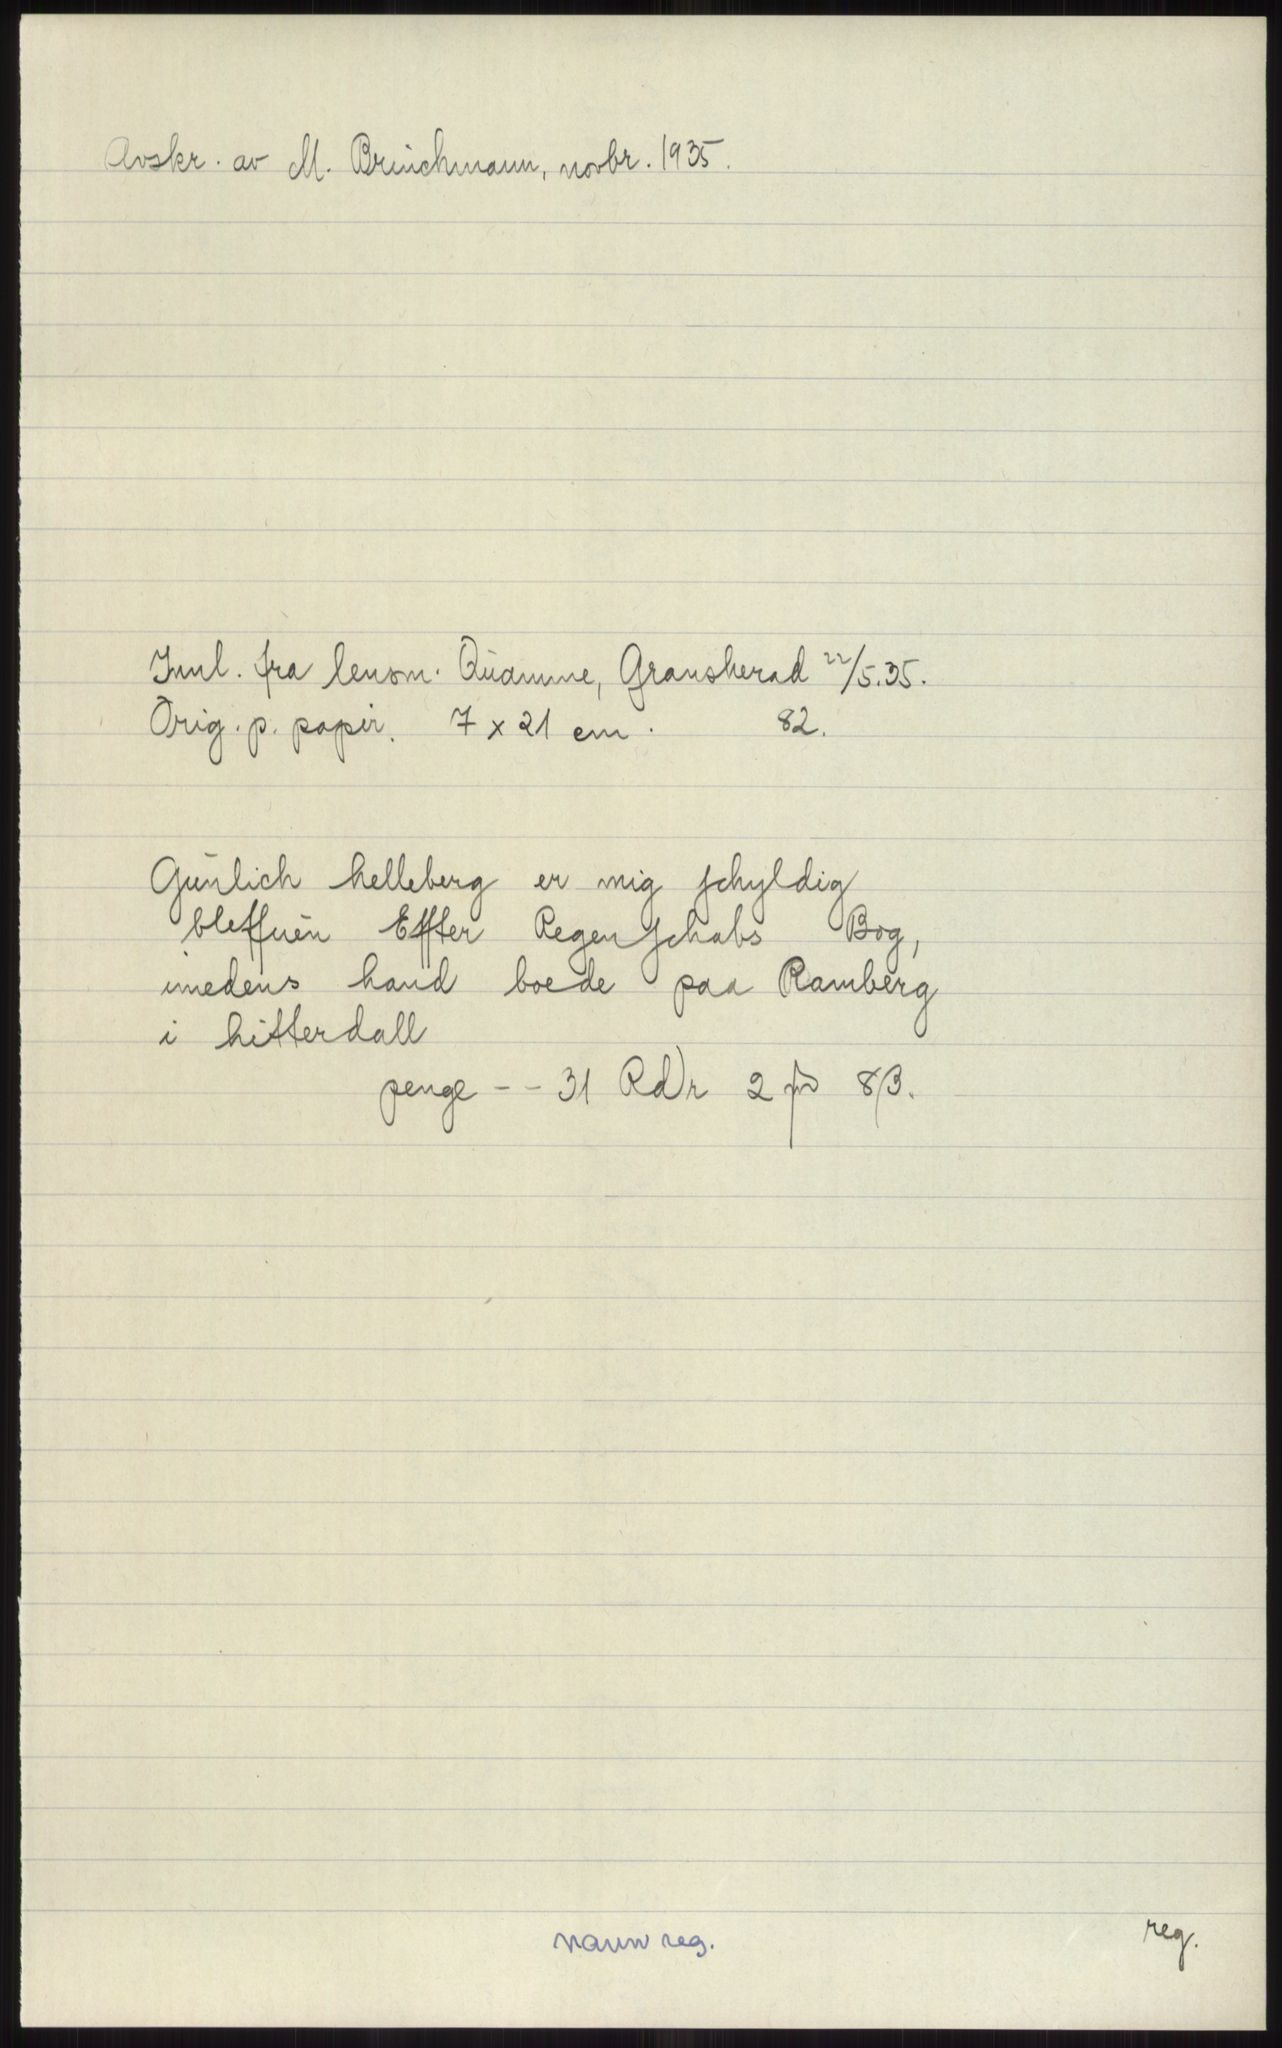 Avskr. av M. Brinchmann, novbr. 1935.
Innl. fra lensm. Quamme, Gransherad 22/5.35.
Orig. p. papir. 7 x 21 cm. 82.
Gunlich helleberg er mig schyldig
bleffuen Effter Regenschabs Bog,
imedens hand boede paa Ramberg
i hitterdall
penge -- 31 Rdr 2 8 β.
navn reg.
reg.